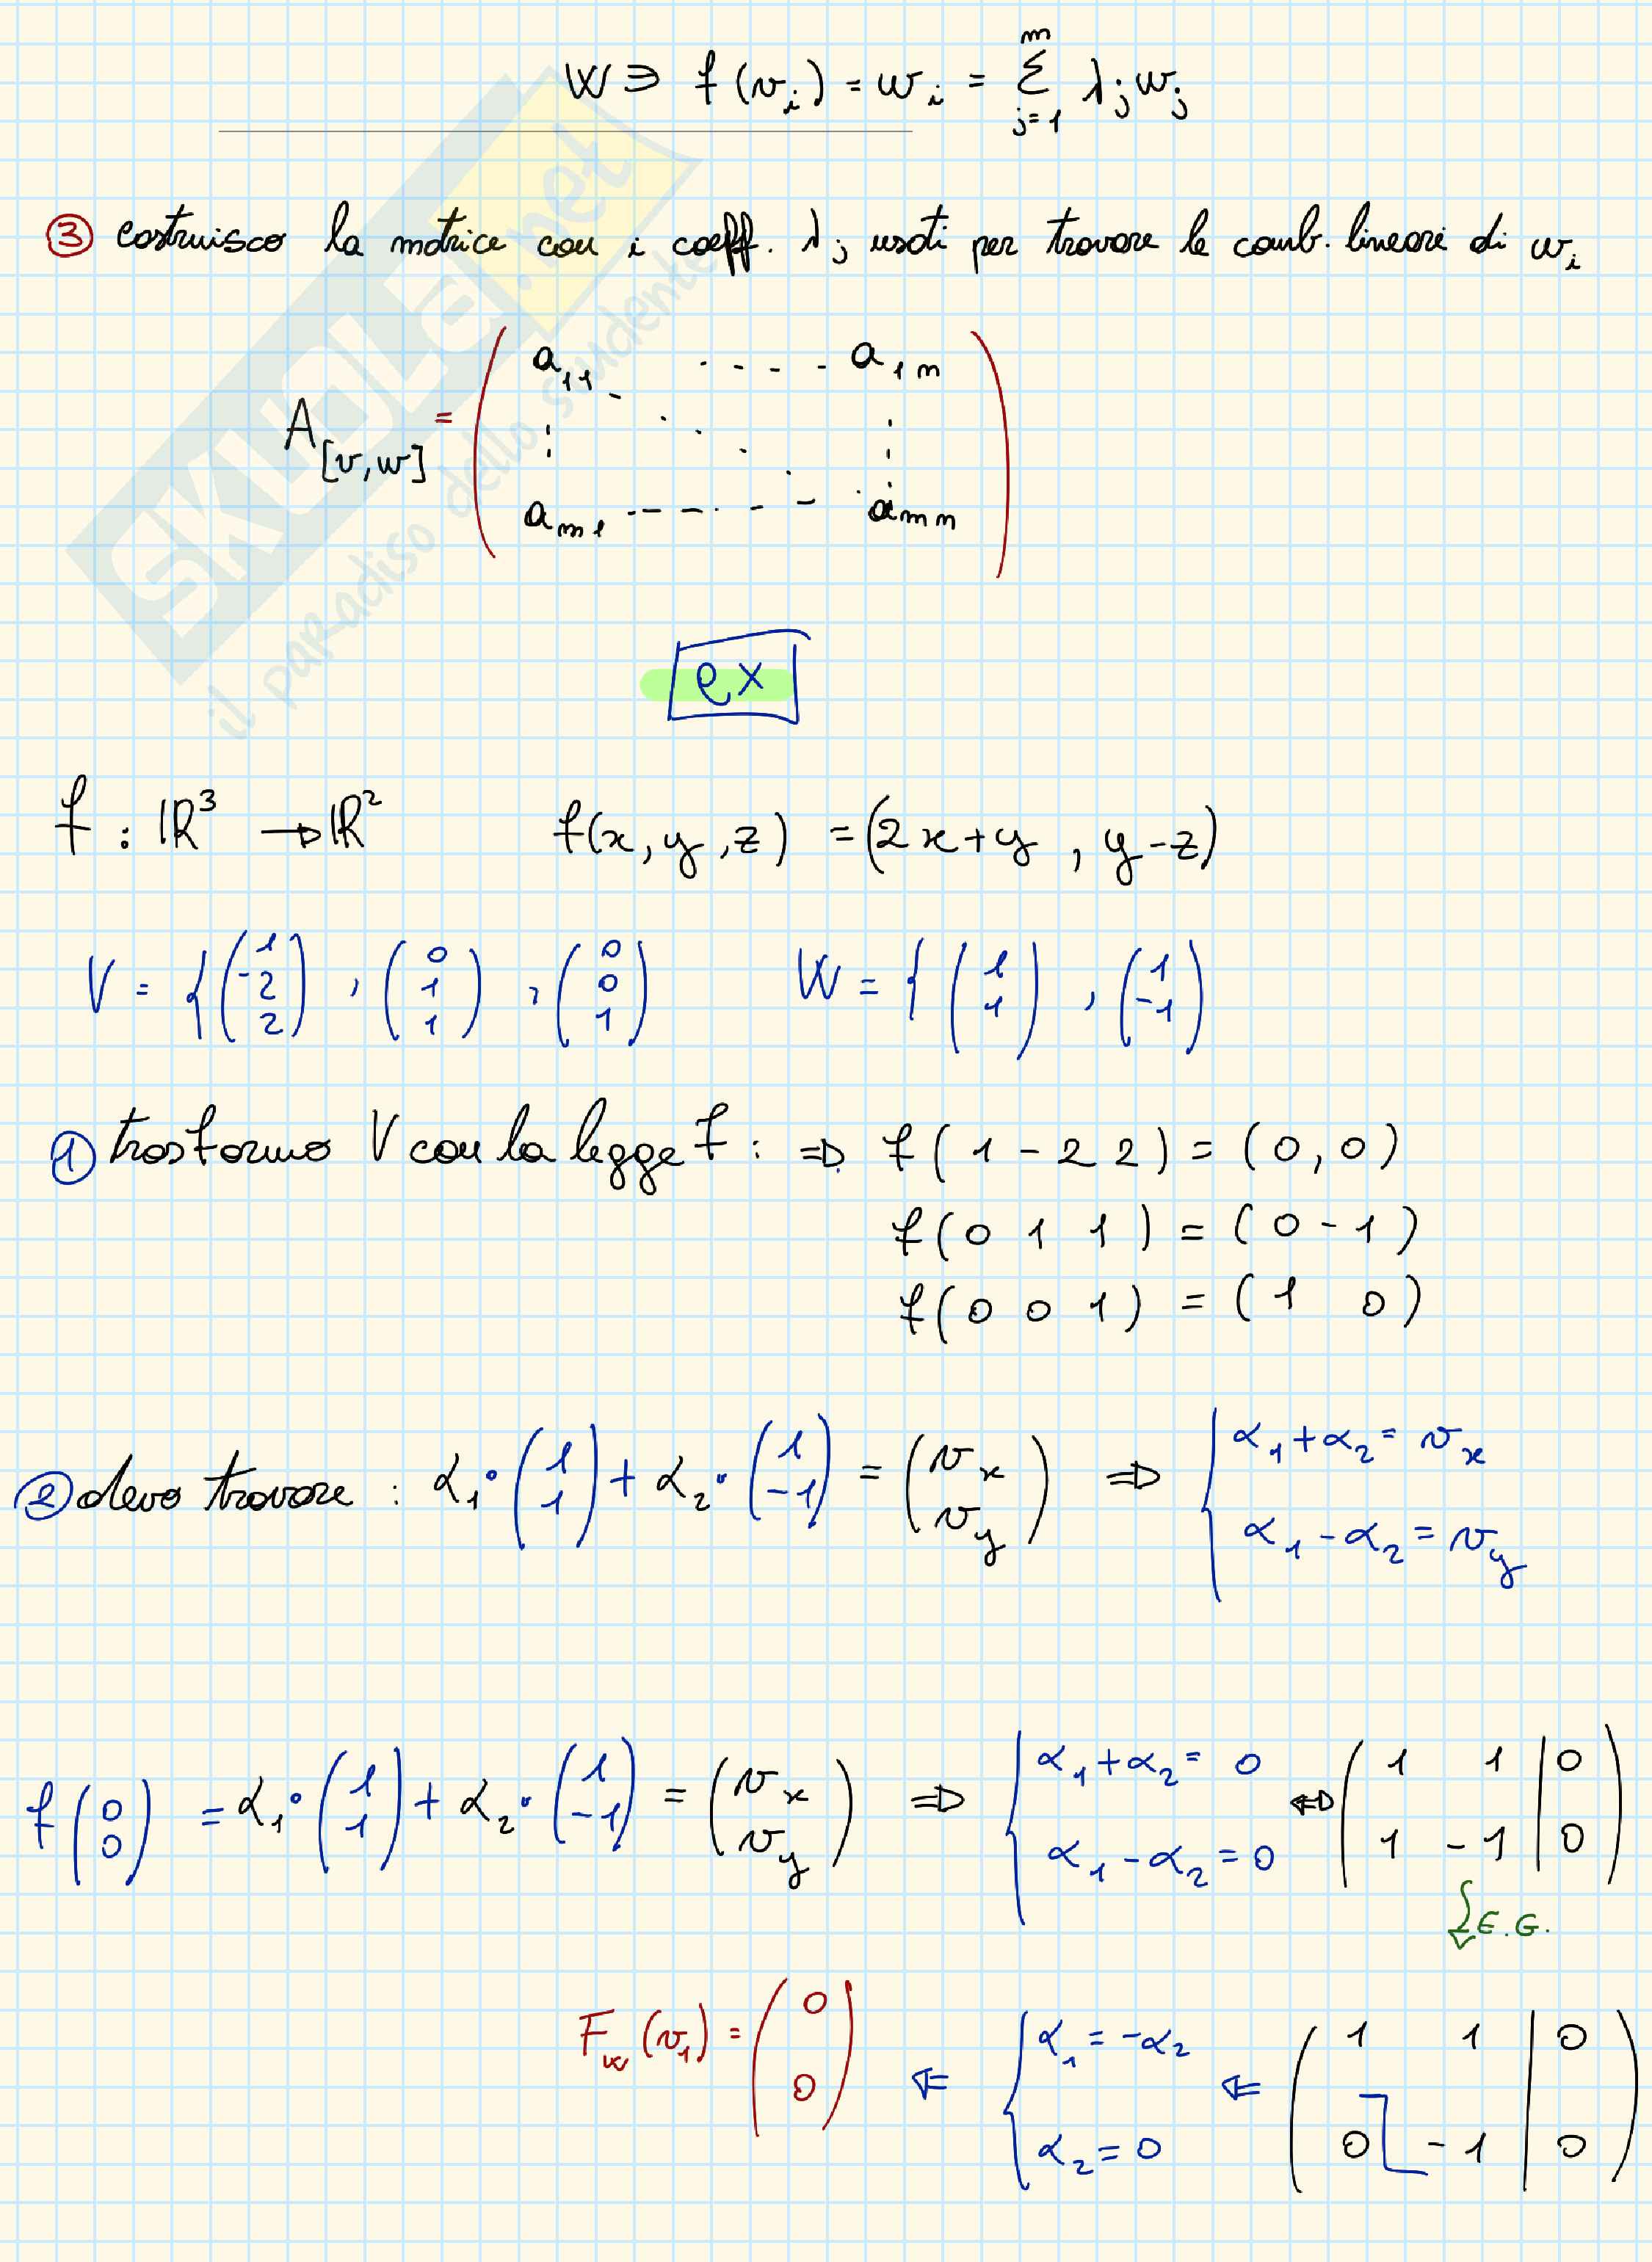 W ∋ f(v_i) = w_i = Σ_{j=1}^{m} λ_j w_j
③ costruisco la matrice con i coeff. λ_j usati per trovare le comb. lineari di w_i
A_{[v,w]} = ( a_{11} ···· a_{1n} ; ⋮ ⋱ ⋮ ; a_{m1} ---- a_{mn} )
ex
f : ℝ³ → ℝ² f(x, y, z) = (2x+y , y-z)
V = { (1 -2 2) , (0 1 1) , (0 0 1) W = { (1 1) , (1 -1)
① trasformo V con la legge f : ⇒ f( 1 -2 2 ) = ( 0 , 0 )
f( 0 1 1 ) = ( 0 -1 )
f( 0 0 1 ) = ( 1 0 )
② devo trovare : α₁ · (1 1) + α₂ · (1 -1) = (v_x v_y) ⇒ { α₁ + α₂ = v_x
α₁ - α₂ = v_y
f (0 0) = α₁ · (1 1) + α₂ · (1 -1) = (v_x v_y) ⇒ { α₁ + α₂ = 0 ⇔ ( 1 1 | 0
α₁ - α₂ = 0 1 -1 | 0 )
E.G.
F_w (v₁) = (0 0) ⇐ { α₁ = -α₂ ⇐ ( 1 1 | 0
α₂ = 0 0 -1 | 0 )
SKUOLA.net
il paradiso dello studente